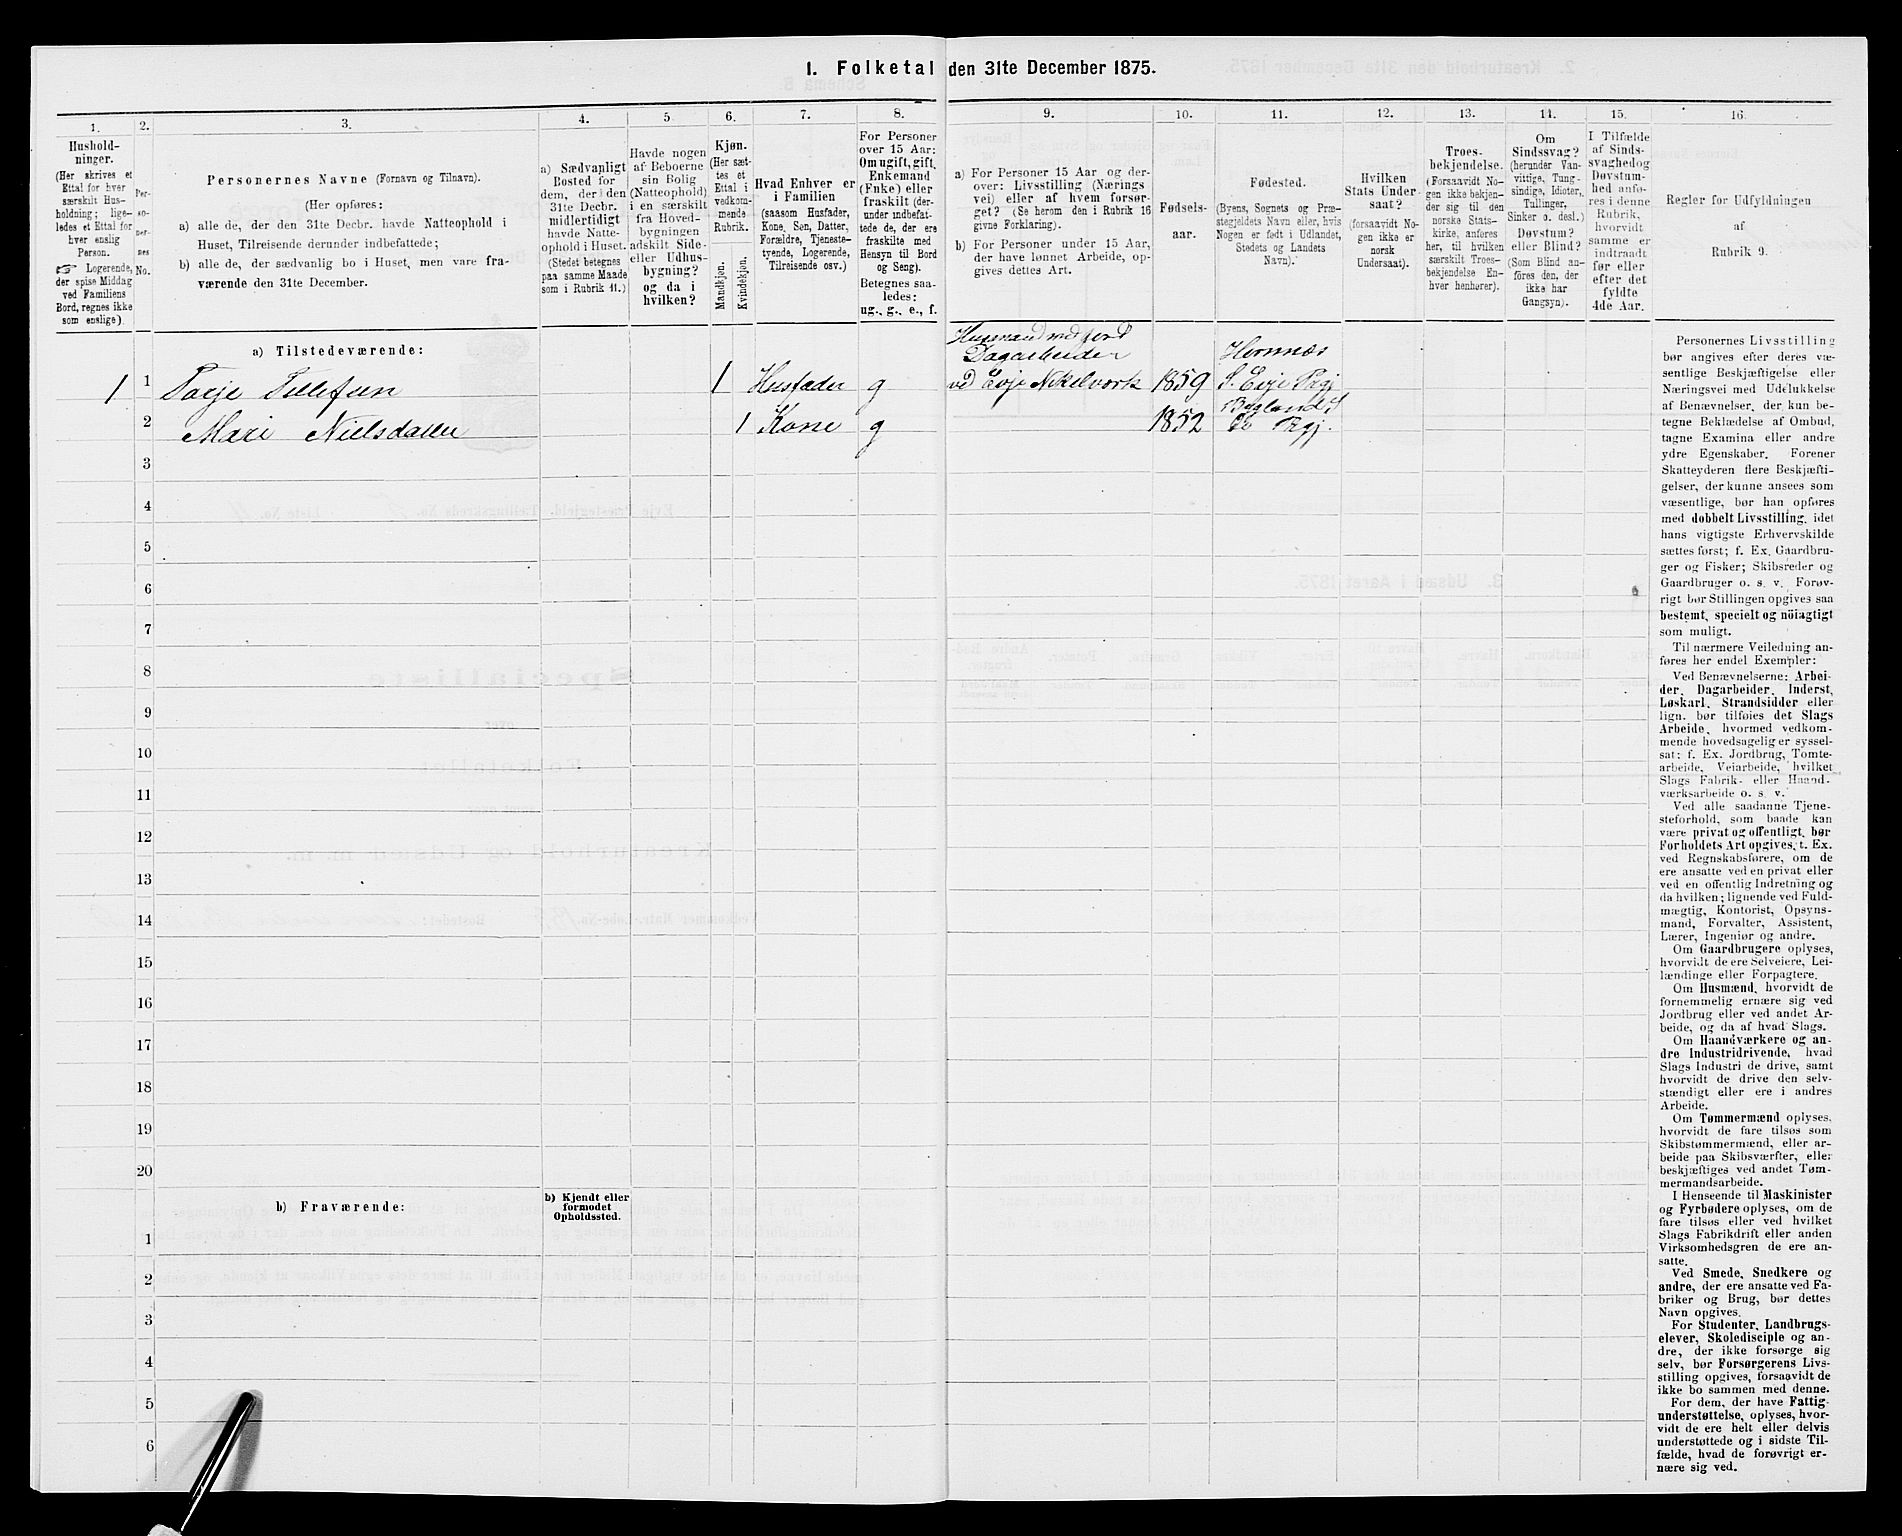 1. Folketal den 31te December 1875.
1.
Hushold-
ninger.
(Her skrives et
Ettal for hver
særskilt Hus-
holdning; lige-
ledes et Ettal for
hver enslig
Person.
Logerende,
der spise Middag
ved Familiens
Bord, regnes ikke
som enslige).
2.
Per-
so-
ner-
nes
No.
3.
Personernes Navne (Fornavn og Tilnavn).
(Her opføres:
a) alle de, der den 31te Decbr. havde Natteophold i
Huset, Tilreisende derunder indbefattede;
b) alle de, der sædvanlig bo i Huset, men vare fra-
værende den 31te December.
4.
a) Sædvanligt
Bosted for
dem, der i den
31te Decbr.
midlertidigt
havde Natte-
ophold i Huset.
(Stedet betegnes
paa samme Maade
som i Rubrik 11.)
5.
Havde nogen
af Beboerne
sin Bolig
(Natteophold)
i en særskilt
fra Hoved-
bygningen
adskilt Side-
eller Udhus-
bygning?
og da i
hvilken?
6.
Kjøn.
(Her sæt-
tes et
Ettal i
vedkom-
mende
Rubrik.
Mandkjøn.
Kvindekjøn.
7.
Hvad Enhver er
i Familien
(saasom Husfader,
Kone, Søn, Datter,
Forældre, Tjeneste-
tyende, Logerende,
Tilreisende osv.)
8.
For Personer
over 15 Aar:
Om ugift, gift,
Enkemand
(Enke) eller
fraskilt (der-
under indbefat-
tede de, der ere
fraskilte med
Hensyn til Bord
og Seng).
Betegnes saa-
ledes:
ug., g., e., f.
9.
a) For Personer 15 Aar og der-
over: Livsstilling (Nærings
vei) eller af hvem forsør-
get? (Se herom den i Rubrik 16
givne Forklaring).
b) For Personer under 15 Aar,
der have lønnet Arbeide, op-
gives dettes Art.
10.
Fødsels-
aar.
11.
Fødested.
(Byens, Sognets og Præ-
stegjeldets Navn eller, hvis
Nogen er født i Udlandet,
Stedets og Landets
Navn).
12.
Hvilken
Stats Under-
saat?
(forsaavidt No-
gen ikke er
norsk
Undersaat).
13.
Troes-
bekjendelse.
(Forsaavidt No-
gen ikke bekjen-
der sig til den
norske Stats-
kirke, anføres
her, til hvilken
særskilt Troes-
bekjendelse En-
hver henhører).
14.
Om
Sindssvag?
(herunder Van-
vittige, Tung-
sindige, Idioter,
Tullinger,
Sinker o. desl.)
Døvstum?
eller Blind?
(Som Blind an-
føres den, der
ikke har
Gangsyn).
15.
I Tilfælde
af Sinds-
svaghed og
Døvstum-
hed anfø-
res i denne
Rubrik,
hvorvidt
samme er
indtraadt
før eller
efter det
fyldte
4de Aar.
16.
Regler for Udfyldningen
af
Rubrik 9.
a) Tilstedeværende:
Husmand med jord
Dagarbeider
Hornnæs
1 1 Torje Tellefsen 1 Husfader g ved Evje Nikelværk 1859 S. Evje Prgj.
Bygland S
2 Mari Nielsdatter 1 Kone g 1852 Do Prgj.
3
4
5
6
7
8
9
10
11
12
13
14
15
16
17
18
19
20
b) Fraværende:
b) Kjendt eller
formodet
Opholdssted.
1
2
3
4
5
6
Personernes Livsstilling
bør angives efter deres væ-
sentlige Beskjæftigelse eller
Næringsvei med Udelukkelse
af Benævnelser, der kun be-
tegne Beklædelse af Ombud,
tagne Examina eller andre
ydre Egenskaber. Forener
Skatteyderen flere Beskjæfti-
gelser, der kunne ansees som
væsentlige, bør han opføres
med dobbelt Livsstilling, idet
hans vigtigste Erhvervskilde
sættes først; f. Ex. Gaardbru-
ger og Fisker; Skibsreder og
Gaardbruger o. s. v. Forøv-
rigt bør Stillingen opgives saa
bestemt, specielt og nöiagtigt
som muligt.
Til nærmere Veiledning an-
føres her endel Exempler:
Ved Benævnelserne: Arbei-
der, Dagarbeider, Inderst,
Løskarl, Strandsidder eller
lign. bør tilføies det Slags
Arbeide, hvormed vedkom-
mende hovedsagelig er syssel-
sat; f. Ex. Jordbrug, Tomte-
arbeide, Veiarbeide, hvilket
Slags Fabrik- eller Haand-
værksarbeide o. s. v.
Ved alle saadanne Tjene-
steforhold, som baade kan
være privat og offentligt, bør
Forholdets Art opgives, t. Ex.
ved Regnskabsførere, om de
ere ansatte ved en privat eller
ved en offentlig Indretning og
da hvilken; lignende ved Fuld-
mægtig, Kontorist, Opsyns-
mand, Forvalter, Assistent,
Lærer, Ingeniør og andre.
Om Gaardbrugere oplyses,
hvorvidt de ere Selveiere, Lei-
lændinge eller Forpagtere.
Om Husmænd, hvorvidt de
fornemmelig ernære sig ved
Jordbrug eller ved andet Ar-
beide, og da af hvad Slags.
Om Haandværkere og an-
dre Industridrivende, hvad
Slags Industri de drive, samt
hvorvidt de drive den selv-
stændigt eller ere i andres
Arbeide.
Om Tømmermænd oplyses,
hvorvidt de fare tilsøs som
Skibstømmermænd, eller ar-
beide paa Skibsværfter, eller
beskjæftiges ved andet Tøm-
mermandsarbeide.
I Henseende til Maskinister
og Fyrbødere oplyses, om de
fare tilsøs eller ved hvilket
Slags Fabrikdrift eller anden
Virksomhedsgren de ere an-
satte.
Ved Smede, Snedkere og
andre, der ere ansatte ved Fa-
briker og Brug, bør dettes
Navn opgives.
For Studenter, Landbrugs-
elever, Skoledisciple og an-
dre, der ikke forsørge sig
selv, bør Forsørgerens Livs-
stilling opgives, forsaavidt de
ikke bo sammen med denne.
For dem, der have Fattig-
understøttelse, oplyses, hvor-
vidt de ere helt eller delvis
understøttede og i sidste Til-
fælde, hvad de forøvrigt er-
nære sig ved.